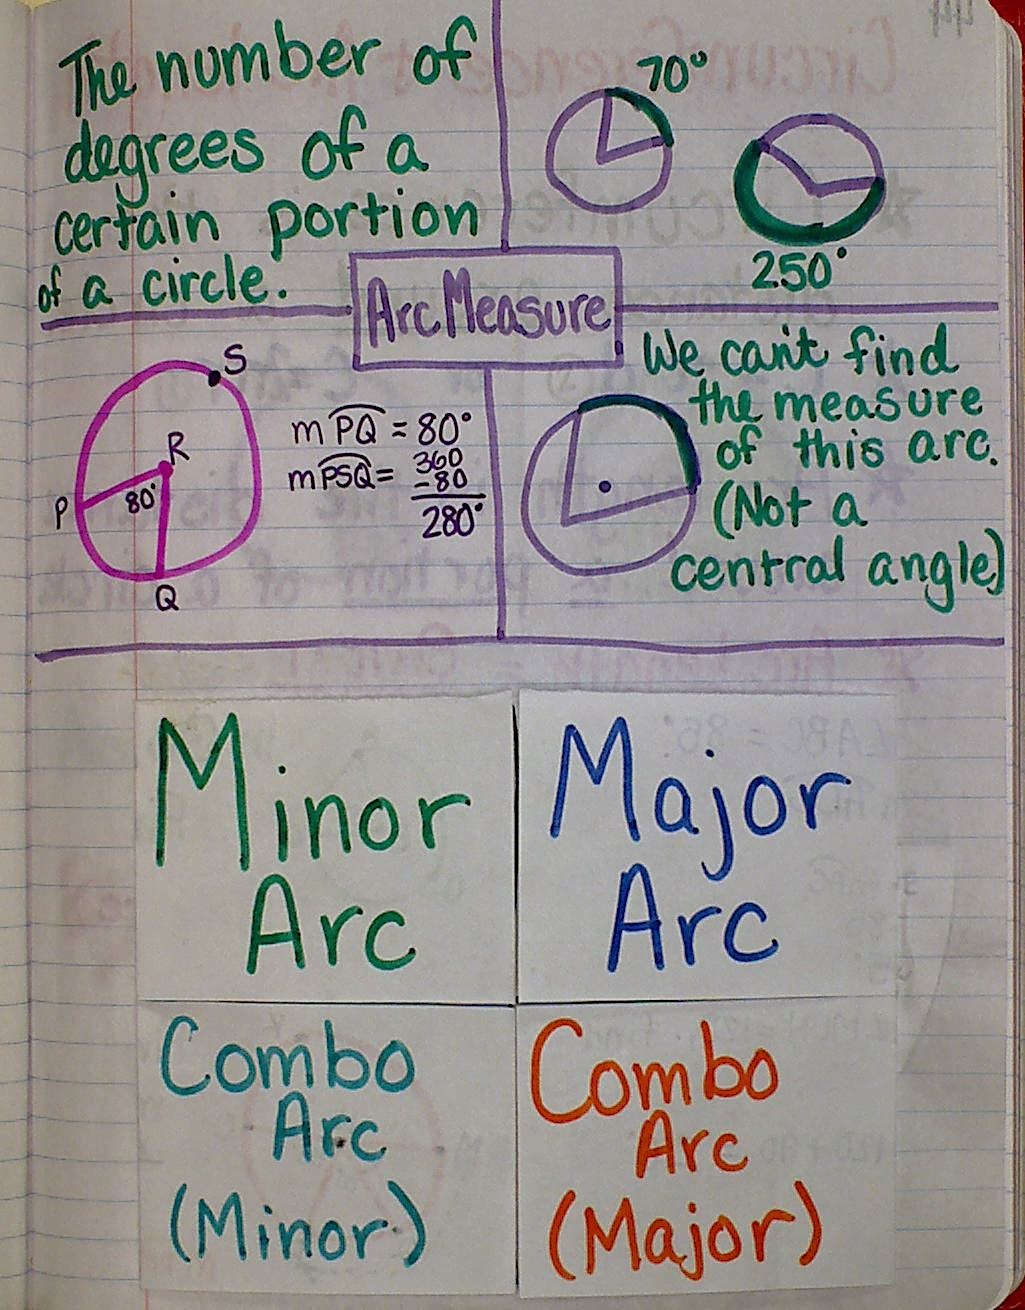 The number of
degrees of a
certain portion
of a circle.
70°
250°
Arc Measure
S
R
P
80°
Q
mPQ = 80°
mPSQ = 360
-80
280°
We can't find
the measure
of this arc.
(Not a
central angle)
Minor
Arc
Major
Arc
Combo
Arc
(Minor)
Combo
Arc
(Major)